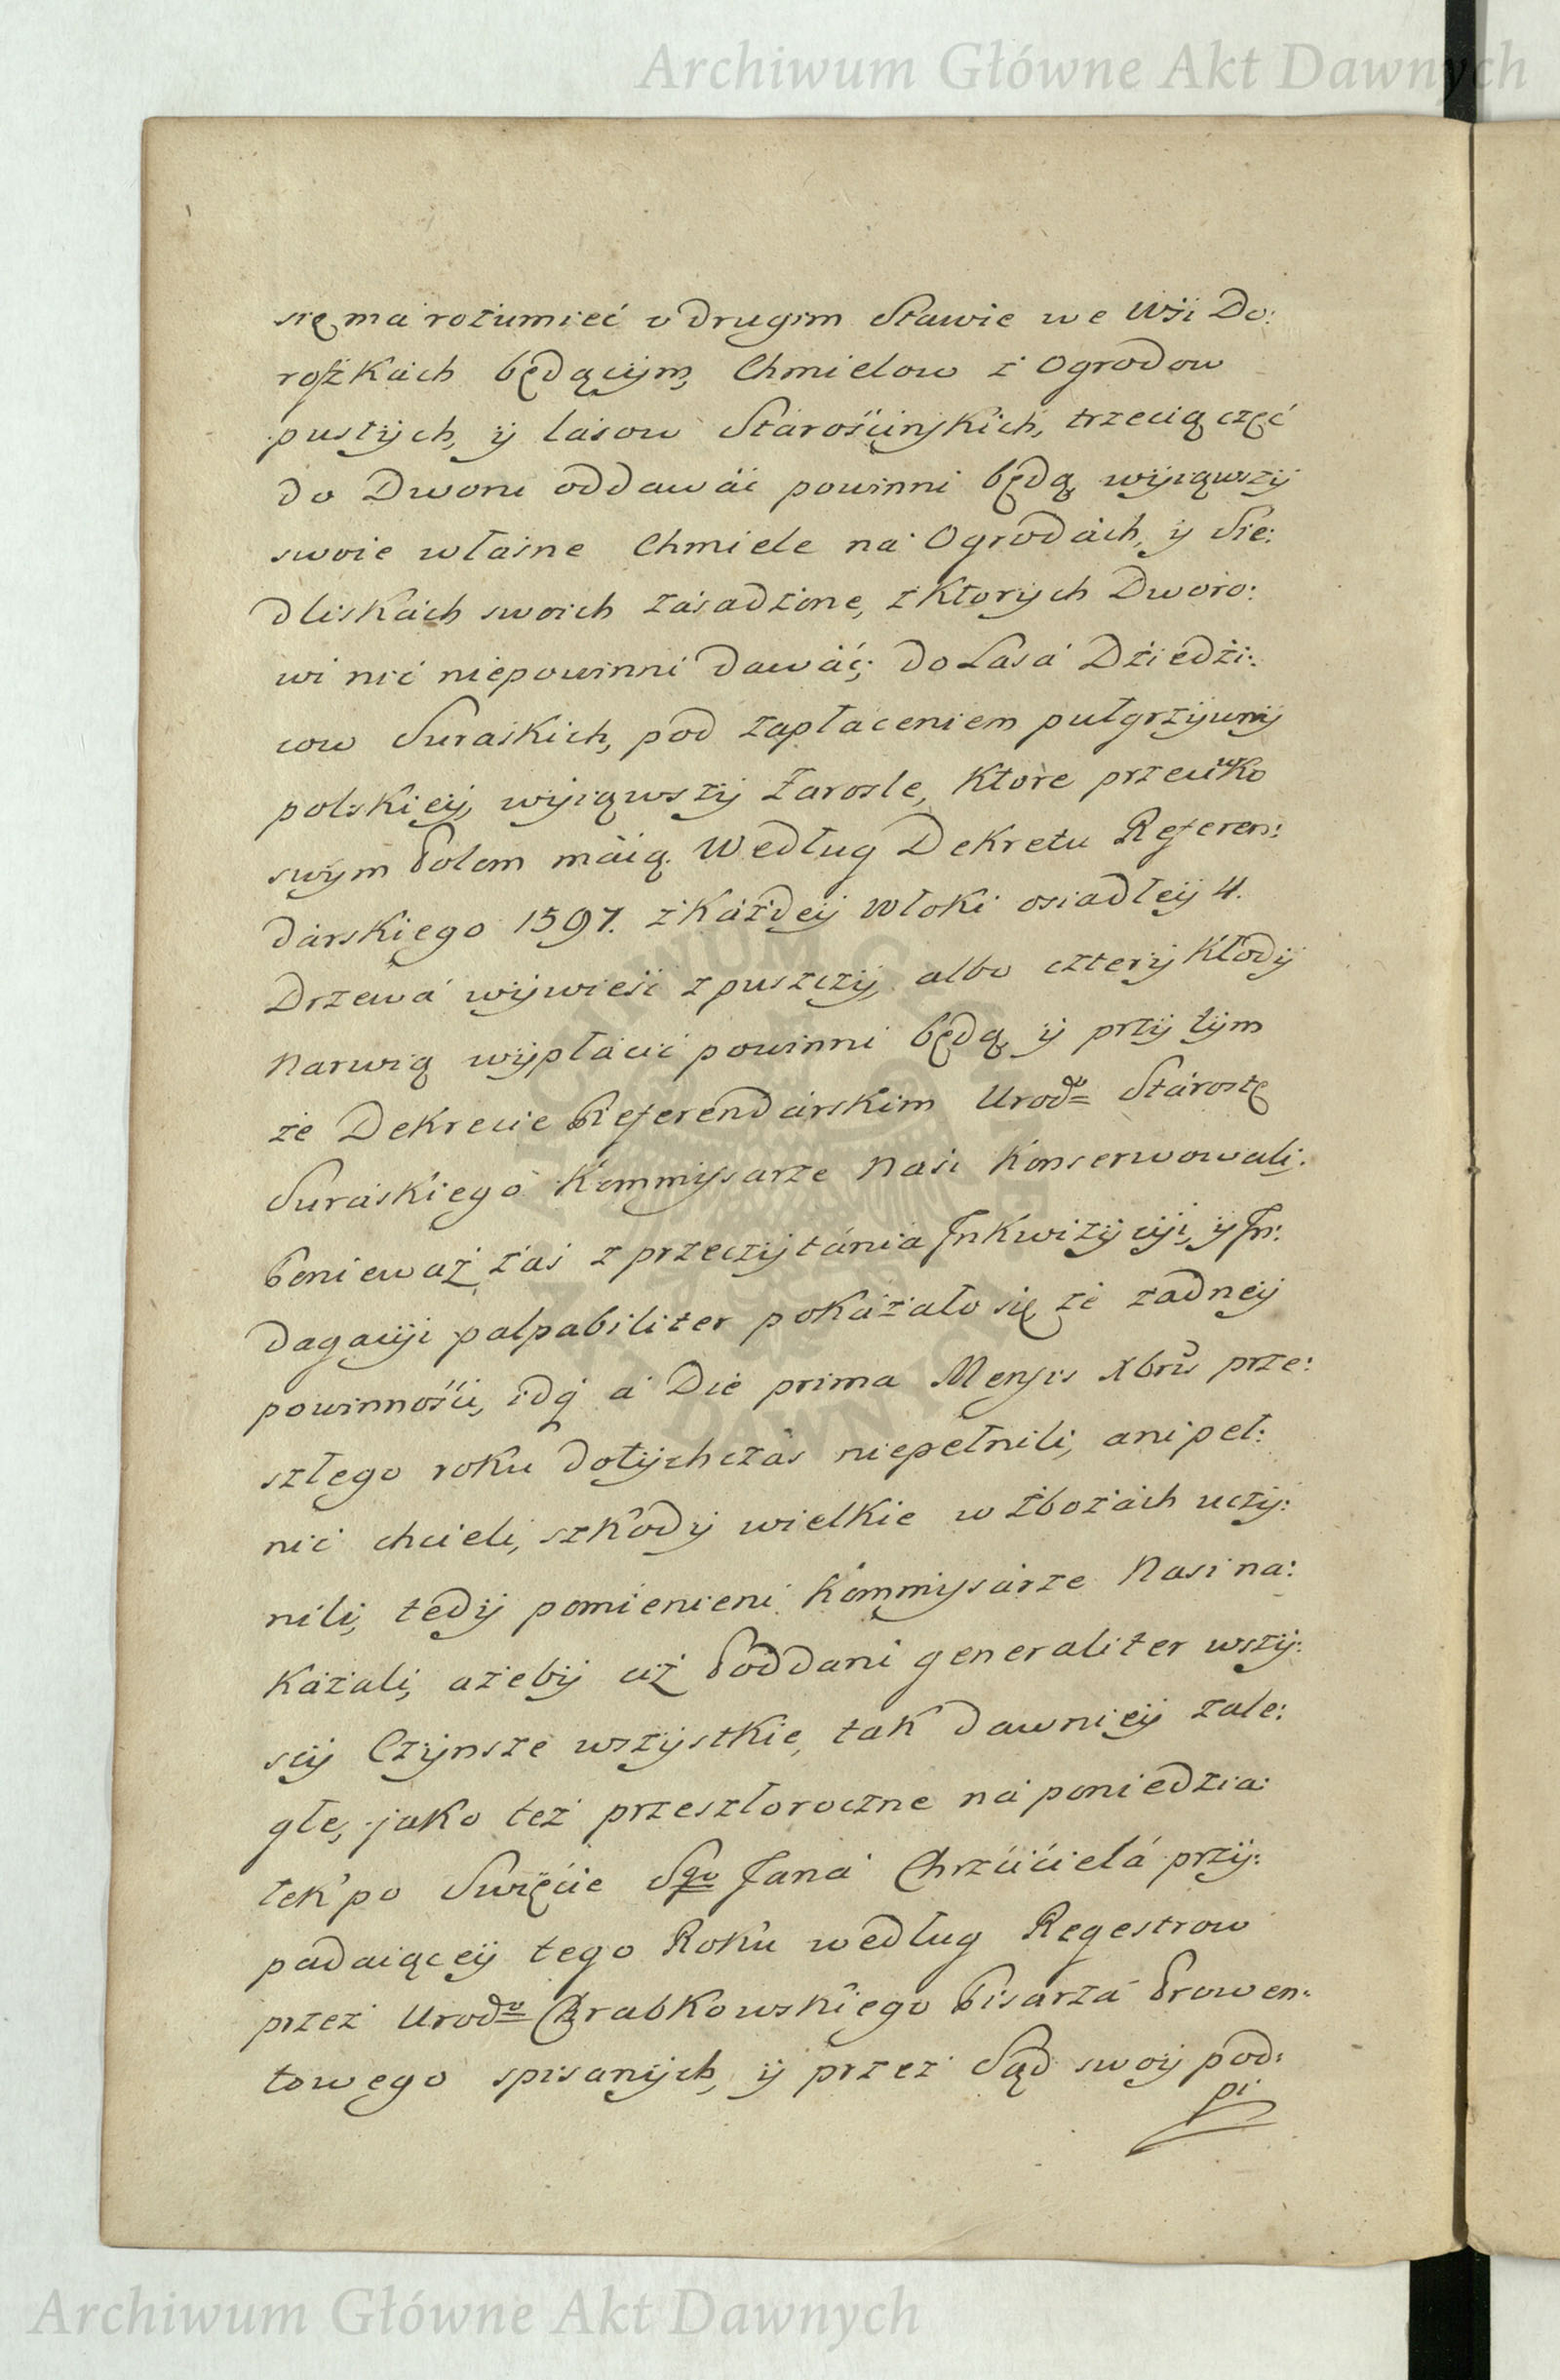 Archiwum Główne Akt Dawnych
się ma rozumieć o drugim Stawie we Wśi Do:
roſzkach będącym, Chmielow z Ogrodow
pustych, y lasow Starośćinskich, trzecią częć
do Dworu oddawać powinni będą, wyiąwszy
swoie własne Chmiele na Ogrodach, y Sie:
dliskach swoich zasadzone, z ktorych Dworo:
wi nić niepowinni dawać; do Lasa Dziedzi:
cow Suraskich, pod zapłaceniem pułgrzywny
polskiey, wyiąwszy Zarosle, ktore przeciwko
swym Polom maią. Według Dekretu Referen:
darskiego 1597. z każdey Włoki osiadłey 4.
Drzewa wywieść z puszczy, albo cztery kłody
Narwią wypłacić powinni będą, y przy tym
że Dekrecie Referendarskim Urodo Starostę
Suraskiego Kommyssarze Nasi konserwowali.
Ponieważ zaś z przeczytania Inkwizycyi, y In:
dagacyi palpabiliter pokazało się że żadney
powinnośći, idq a Die prima Mensis Xbris prze:
szłego roku dotychczas niepełnili, ani peł:
nić chcieli, szkody wielkie w zbożach uczy:
nili, tedy pomienieni Kommyssarze Nasi na:
kazali, ażeby ciż Poddani generaliter wszy:
scy Czynsze wszystkie, tak dawniey zale:
głe, jako też przeszłoroczne na poniedzia:
łek po Swięćie Sgo Jana Chrzćićiela przy:
padaiącey tego Roku według Regestrow
przez Urodo Chrabkowskiego Pisarza Prowen:
towego spisanych, y przez Sąd swoy pod:
pi
Archiwum Główne Akt Dawnych